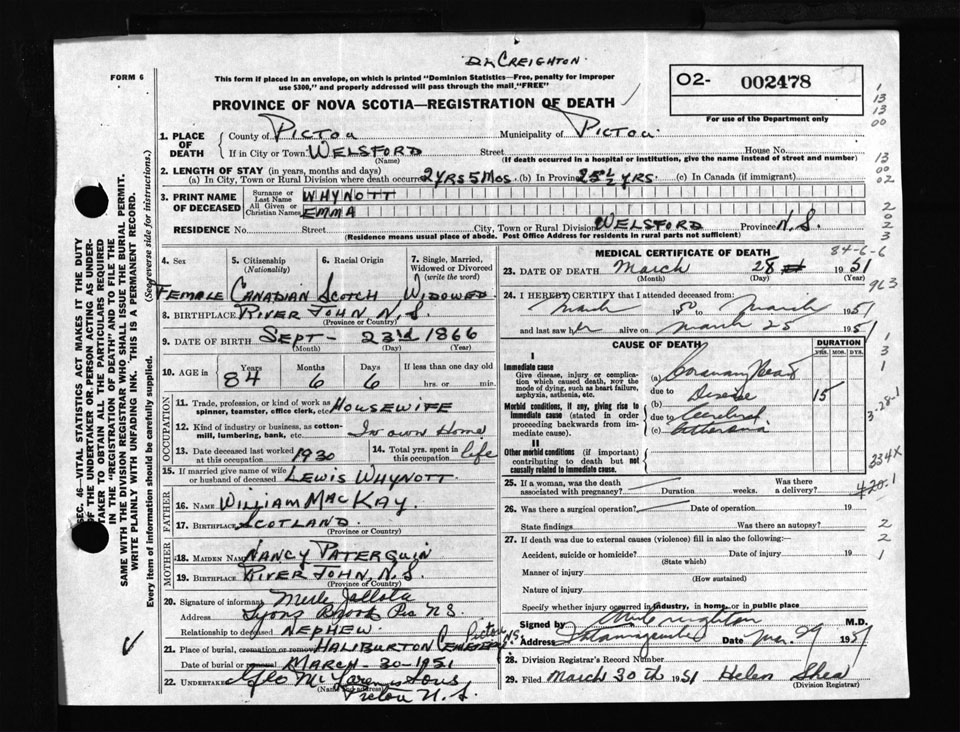 Dr CREIGHTON
FORM 6
This form if placed in an envelope, on which is printed "Dominion Statistics—Free, penalty for improper
use $300," and properly addressed will pass through the mail "FREE"
PROVINCE OF NOVA SCOTIA—REGISTRATION OF DEATH
O2- 002478
For use of the Department only
1. PLACE OF DEATH
County of PICTOU Municipality of PICTOU
If in City or Town WELSFORD Street House No.
(Name) (If death occurred in a hospital or institution, give the name instead of street and number)
2. LENGTH OF STAY (in years, months and days)
(a) In City, Town or Rural Division where death occurred 2 YRS 5 MOS. (b) In Province YRS. (c) In Canada (if immigrant)
3. PRINT NAME OF DECEASED
Surname or Last Name WHYNOTT
All Given or Christian Names EMMA
RESIDENCE No. Street City, Town or Rural Division WELSFORD Province N.S.
(Residence means usual place of abode. Post Office Address for residents in rural parts not sufficient)
4. Sex FEMALE
5. Citizenship (Nationality) CANADIAN
6. Racial Origin SCOTCH
7. Single, Married, Widowed or Divorced (write the word) WIDOWED
8. BIRTHPLACE RIVER JOHN N.S.
(Province or Country)
9. DATE OF BIRTH SEPT— 23rd 1866
(Month) (Day) (Year)
10. AGE in Years Months Days If less than one day old
84 6 6 hrs. or min.
OCCUPATION
11. Trade, profession, or kind of work as spinner, teamster, office clerk, etc. HOUSEWIFE
12. Kind of industry or business, as cotton-mill, lumbering, bank, etc. In own Home
13. Date deceased last worked at this occupation 1930
14. Total yrs. spent in this occupation life
15. If married give name of wife or husband of deceased LEWIS WHYNOTT
FATHER
16. NAME WILLIAM MACKAY
17. BIRTHPLACE SCOTLAND
(Province or Country)
MOTHER
18. MAIDEN NAME NANCY PATERQUIN
19. BIRTHPLACE RIVER JOHN, N.S.
(Province or Country)
20. Signature of informant Merle
Address Brook Pic N.S.
Relationship to deceased NEPHEW
21. Place of burial, cremation or removal HALIBURTON CEMETERY Pictou N.S.
Date of burial or removal MARCH—30—1951
22. UNDERTAKER & Sons
(Name and address)
Pictou N.S.
MEDICAL CERTIFICATE OF DEATH
84-6-6
23. DATE OF DEATH March 28 1951
(Month) (Day) (Year)
24. I HEREBY CERTIFY that I attended deceased from:
March 1950 to March 1951
and last saw her alive on March 25 1951
CAUSE OF DEATH
DURATION
YRS. MOS. DYS.
I
Immediate cause
Give disease, injury or complication which caused death, NOT the mode of dying, such as heart failure, asphyxia, asthenia, etc.
(a) Coronary Heart
due to Disease 15
Morbid conditions, if any, giving rise to immediate cause (stated in order proceeding backwards from immediate cause).
(b)
due to Cerebral
(c)
II
Other morbid conditions (if important) contributing to death but not causally related to immediate cause.
25. If a woman, was the death associated with pregnancy? Duration weeks. Was there a delivery?
26. Was there a surgical operation? Date of operation 19
State findings Was there an autopsy?
27. If death was due to external causes (violence) fill in also the following:
Accident, suicide or homicide? Date of injury 19
(State which)
Manner of injury
(How sustained)
Nature of injury
Specify whether injury occurred in industry, in home, or in public place
Signed by Creighton M.D.
Address Tatamagouche Date Mar 29 1951
28. Division Registrar's Record Number
29. Filed March 30th 1951 Helen Shea
(Division Registrar)
1
13
13
00
13
00
02
2
02
2
3
963
1
3
1
3-28-1
334X
420.1
2
2
1
SEC. 46—VITAL STATISTICS ACT MAKES IT THE DUTY
OF THE UNDERTAKER OR PERSON ACTING AS UNDER-
TAKER TO OBTAIN ALL THE PARTICULARS REQUIRED
IN THE "REGISTRATION OF DEATH" AND TO FILE THE
SAME WITH THE DIVISION REGISTRAR WHO SHALL ISSUE THE BURIAL PERMIT.
WRITE PLAINLY WITH UNFADING INK. THIS IS A PERMANENT RECORD.
Every item of information should be carefully supplied. (See reverse side for instructions.)